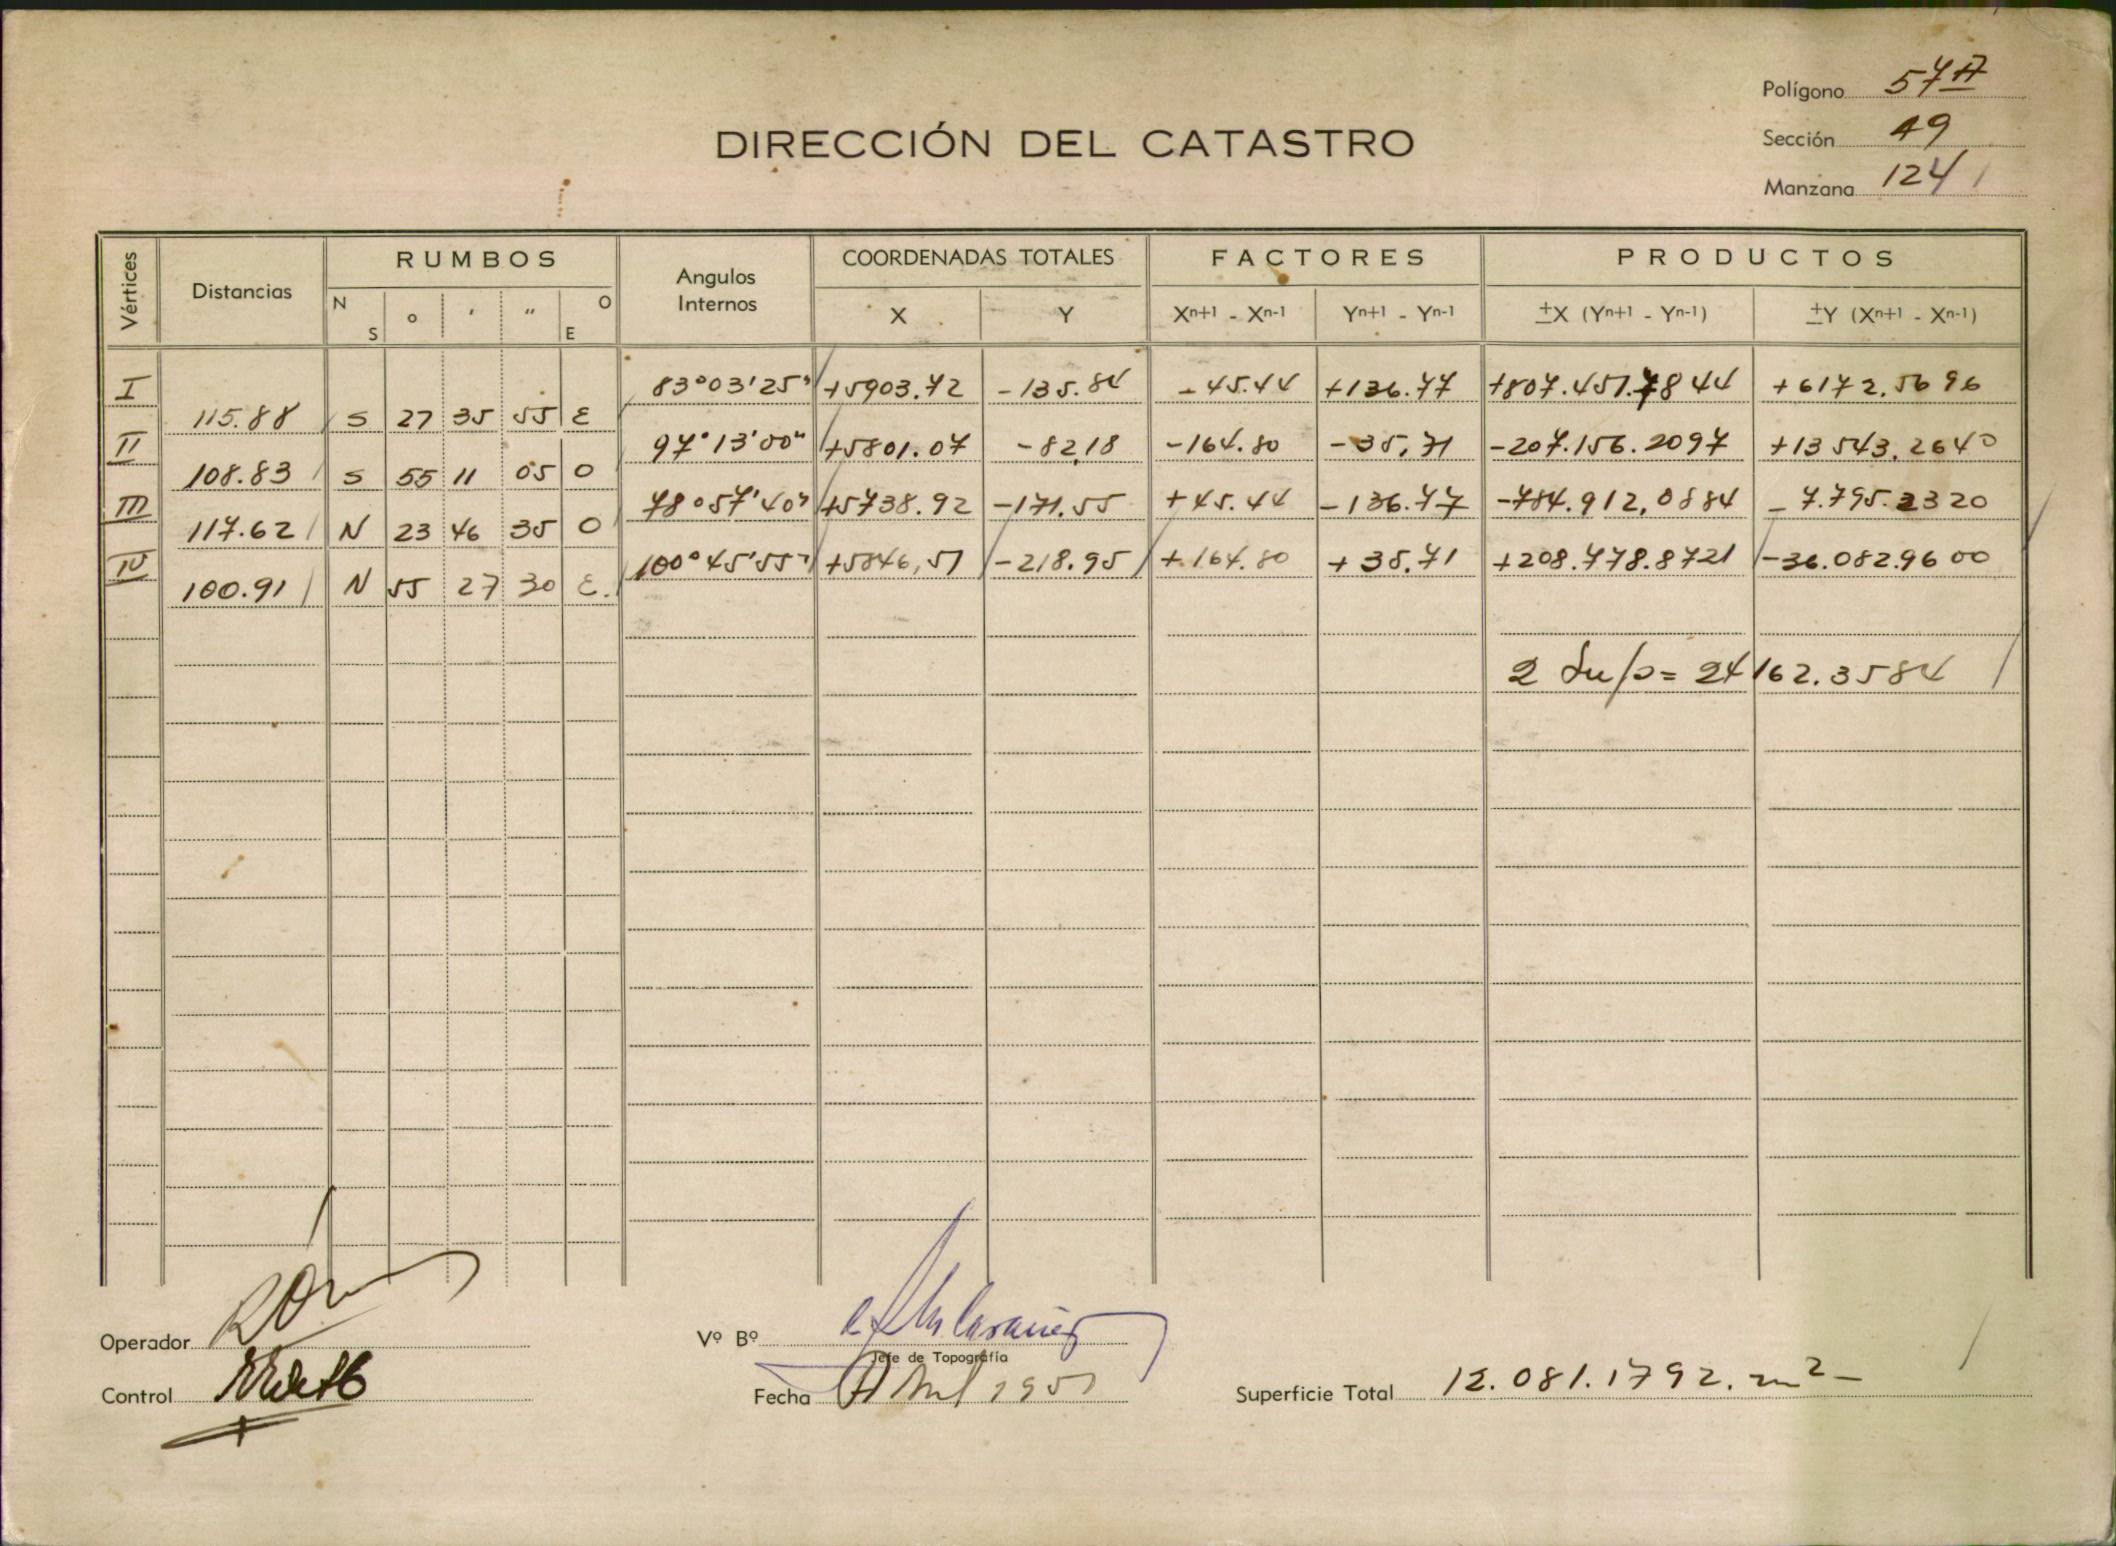 Polígono 57A
DIRECCIÓN DEL CATASTRO
Sección 49
Manzana 124
Vértices
Distancias
RUMBOS
N S o ' " O E
Angulos Internos
COORDENADAS TOTALES
X Y
FACTORES
Xn+1 - Xn-1 Yn+1 - Yn-1
PRODUCTOS
±X (Yn+1 - Yn-1) ±Y (Xn+1 - Xn-1)
I 83°03'25" +5903.72 -135.84 -45.44 +136.77 +807.451.7844 +6172.5696
115.88 S 27 35 55 E
II 97°13'00" +5801.07 -82.18 -164.80 -35.71 -207.156.2097 +13543.2640
108.83 S 55 11 05 O
III 78°57'40" +5738.92 -171.55 +45.44 -136.77 -784.912,0884 -7.795.2320
117.62 N 23 46 35 O
IV 100°45'55" +5846,51 -218.95 +164.80 +35.71 +208.778.8721 -36.082.9600
100.91 N 55 27 30 E.
2 Sup= 24162.3584
Operador
Vº Bº
Jefe de Topografía
Control
Fecha Abril 1951
Superficie Total 12.081.1792. m2-